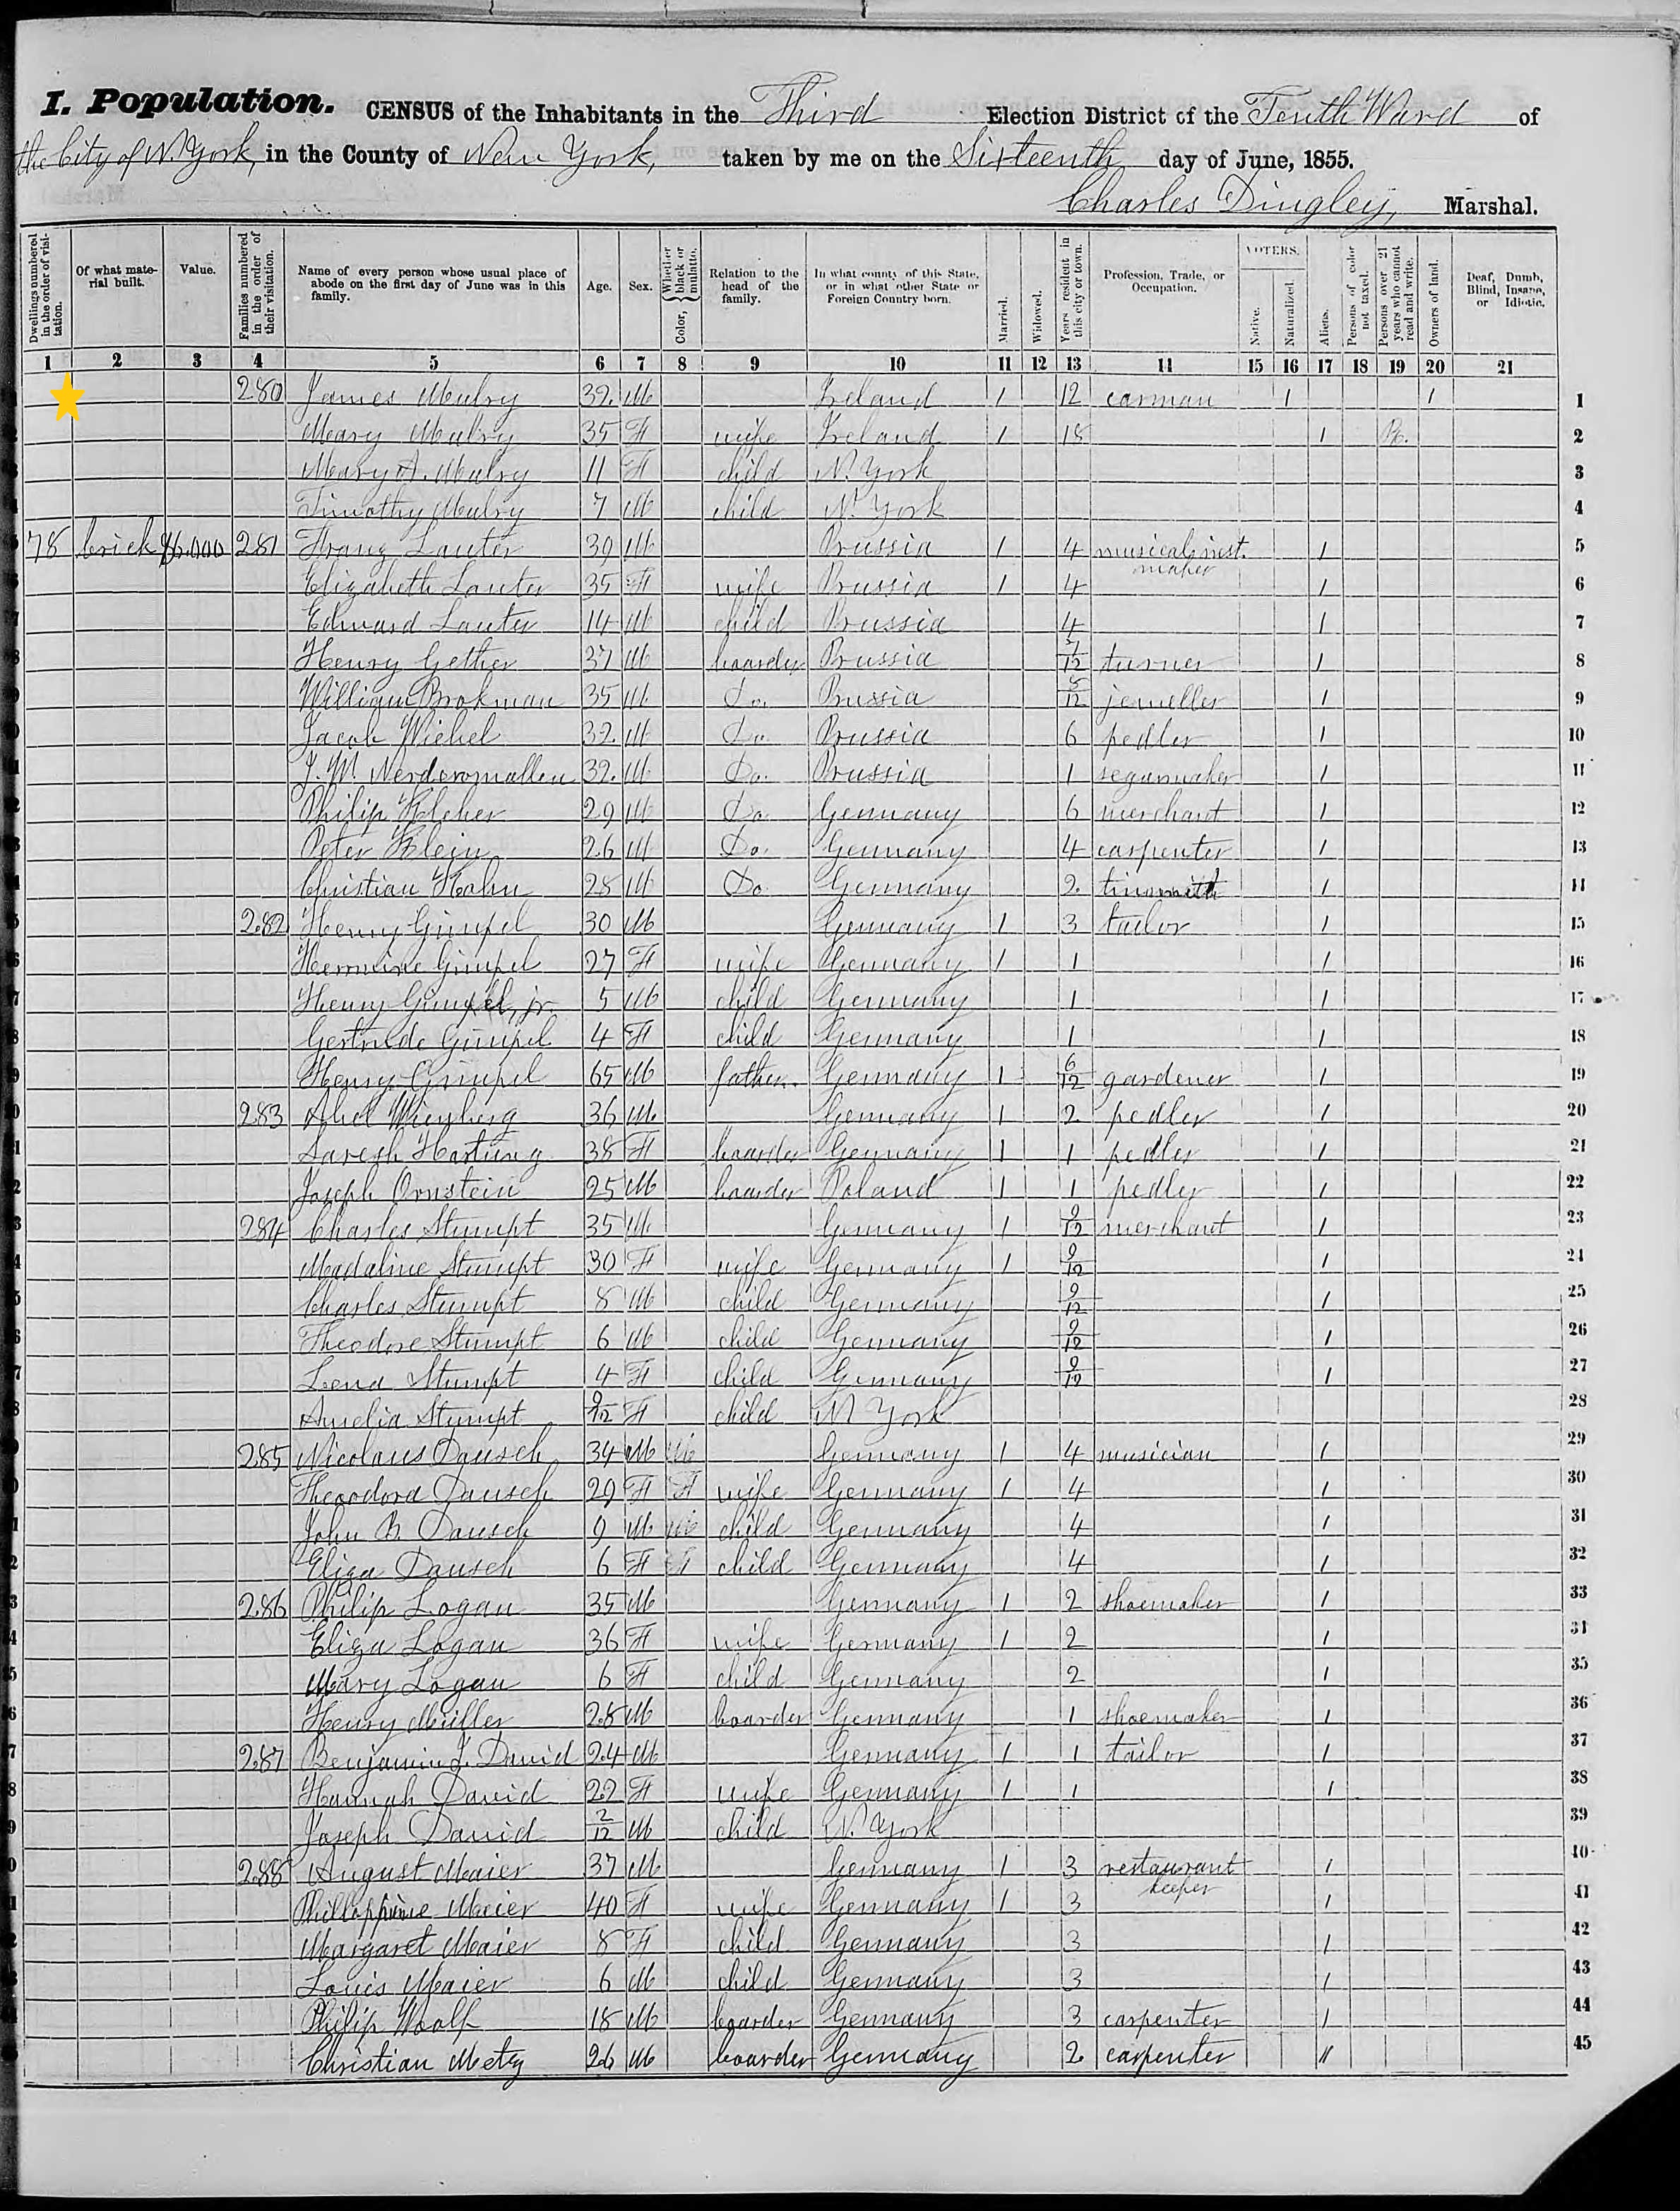 I. Population. CENSUS of the Inhabitants in the Third Election District of the Tenth Ward of
the City of N. York, in the County of New York, taken by me on the Sixteenth day of June, 1855.
Charles Dingley, Marshal.
Dwellings numbered in the order of visitation. Of what material built. Value. Families numbered in the order of their visitation. Name of every person whose usual place of abode on the first day of June was in this family. Age. Sex. Color, Whether black or mulatto. Relation to the head of the family. In what county of this State, or in what other State or Foreign Country born. Married. Widowed. Years resident in this city or town. Profession, Trade, or Occupation. VOTERS. Native. Naturalized. Aliens. Persons of color not taxed. Persons over 21 years who cannot read and write. Owners of land. Deaf, Dumb, Blind, Insane, or Idiotic.
1 2 3 4 5 6 7 8 9 10 11 12 13 14 15 16 17 18 19 20 21
280 James Mulry 32. M Ireland 1 12 carman 1 1 1
Mary Mulry 35 F wife Ireland 1 18 1 2
Mary A. Mulry 11 F child N. York 3
Timothy Mulry 7 M child N. York 4
78 brick $6.000 281 Franz Lauter 39 M Prussia 1 4 musical inst. maker 1 5
Elizabeth Lauter 35 F wife Prussia 1 4 1 6
Edward Lauter 14 M child Prussia 4 1 7
Henry Gether 37 M boarder Prussia 7/12 turner 1 8
William Brokman 35 M. Do. Prussia 8/12 jeweller 1 9
Jacob Wiebel 32. M Do Prussia 6 pedler 1 10
J. W. 32. M Do. Prussia 1 segarmaker 1 11
Philip 29 M Do Germany 6 merchant 1 12
Peter Klein 26 M Do. Germany 4 carpenter 1 13
Christian Hahn 28 M Do Germany 2. tinsmith 1 14
282 Henry Gimpel 30 M Germany 1 3 tailor 1 15
Hermine Gimpel 27 F wife Germany 1 1 1 16
Henry Gimpel, jr. 5 M child Germany 1 1 17
Gertrude Gimpel 4 F child Germany 1 1 18
Henry Gimpel 65 M father. Germany 1 6/12 gardener 1 19
283 Abel Wienberg 36 M. Germany 1 2 pedler 1 20
Saregh Hartung 38 F boarder Germany 1 1 pedler 1 21
Joseph Ornstein 25 M boarder Poland 1 1 pedler 1 22
284 Charles Stumpt 35 M. Germany 1 9/12 merchant 1 23
Madaline Stumpt 30 F wife Germany 1 9/12 1 24
Charles Stumpt 8 M child Germany 9/12 1 25
Theodore Stumpt 6 M child Germany 9/12 1 26
Lena Stumpt 4 F child Germany 9/12 1 27
Amelia Stumpt 9/12 F child N York 28
285 Nicolaus Dausch 34 M M Germany 1 4 musician 1 29
Theodora Dausch 29 F F wife Germany 1 4 1 30
John B. Dausch 9 M M child Germany 4 1 31
Eliza Dausch 6 F F child Germany 4 1 32
286 Philip Logan 35 M Germany 1 2 shoemaker 1 33
Eliza Logan 36 F wife Germany 1 2 1 34
Mary Logan 6 F child Germany 2 1 35
Henry Müller 28 M boarder Germany 1 shoemaker 1 36
287 Benjamin J. David 24 M Germany 1 1 tailor 1 37
Hannah David 22 F wife Germany 1 1 1 38
Joseph David 2/12 M child N. York 39
288 August Maier 37 M Germany 1 3 restaurant keeper 1 40
Phillappine Maier 40 F wife Germany 1 3 1 41
Margaret Maier 8 F child Germany 3 1 42
Louis Maier 6 M child Germany 3 1 43
Philip Woolf 18 M boarder Germany 3 carpenter 1 44
Christian Metz 26 M boarder Germany 2 carpenter 11 45